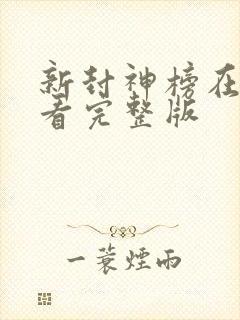 新封神榜在
看完整版
一蓑煙雨